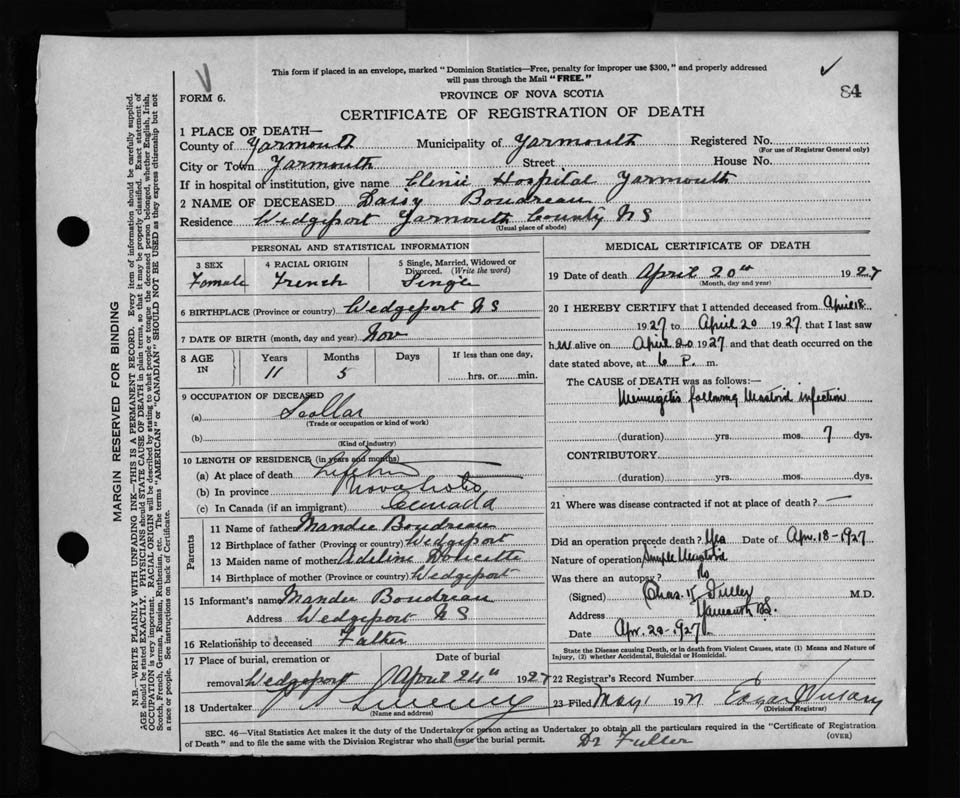 This form if placed in an envelope, marked "Dominion Statistics—Free, penalty for improper use $300," and properly addressed
will pass through the Mail "FREE."
FORM 6.
PROVINCE OF NOVA SCOTIA
84
CERTIFICATE OF REGISTRATION OF DEATH
1 PLACE OF DEATH—
County of Yarmouth Municipality of Yarmouth Registered No.
(For use of Registrar General only)
City or Town Yarmouth Street House No.
If in hospital or institution, give name Clinic Hospital Yarmouth
2 NAME OF DECEASED Daisy Boudreau
Residence Wedgeport Yarmouth County NS
(Usual place of abode)
PERSONAL AND STATISTICAL INFORMATION
3 SEX 4 RACIAL ORIGIN 5 Single, Married, Widowed or
Divorced. (Write the word)
Female French Single
6 BIRTHPLACE (Province or country) Wedgeport NS
7 DATE OF BIRTH (month, day and year) Nov
8 AGE IN Years Months Days If less than one day,
11 5 hrs. or min.
9 OCCUPATION OF DECEASED
(a) Scollar
(Trade or occupation or kind of work)
(b)
(Kind of industry)
10 LENGTH OF RESIDENCE (in years and months)
(a) At place of death
(b) In province Nova Scotia
(c) In Canada (if an immigrant) Canada
Parents
11 Name of father Mandee Boudreau
12 Birthplace of father (Province or country) Wedgeport
13 Maiden name of mother Adeline
14 Birthplace of mother (Province or country) Wedgeport
15 Informant's name Mandee Boudreau
Address Wedgeport NS
16 Relationship to deceased Father
17 Place of burial, cremation or Date of burial
removal Wedgeport April 24th 1927
18 Undertaker Sweeney
(Name and address)
MEDICAL CERTIFICATE OF DEATH
19 Date of death April 20th 1927
(Month, day and year)
20 I HEREBY CERTIFY that I attended deceased from April 18
1927 to April 20 1927 that I last saw
her alive on April 20 1927 and that death occurred on the
date stated above, at 6 P. m.
The CAUSE OF DEATH was as follows:—
Meningitis following Mastoid infection
(duration) yrs. mos. 7 dys.
CONTRIBUTORY
(duration) yrs. mos. dys.
21 Where was disease contracted if not at place of death?
Did an operation precede death? Yes Date of Apr. 18-1927
Nature of operation Simple Mastoid
Was there an autopsy? No
(Signed) Chas. K Fuller M.D.
Address Yarmouth N.S.
Date Apr. 20-1927
State the Disease causing Death, or in death from Violent Causes, state (1) Means and Nature of
Injury, (2) whether Accidental, Suicidal or Homicidal.
22 Registrar's Record Number
23 Filed May 1 1927 Edgar
(Division Registrar)
SEC. 46—Vital Statistics Act makes it the duty of the Undertaker or person acting as Undertaker to obtain all the particulars required in the "Certificate of Registration
of Death" and to file the same with the Division Registrar who shall issue the burial permit.
(OVER)
Dr Fuller
MARGIN RESERVED FOR BINDING
N.B.—WRITE PLAINLY WITH UNFADING INK—THIS IS A PERMANENT RECORD. Every item of information should be carefully supplied.
AGE should be stated EXACTLY. PHYSICIANS should STATE CAUSE OF DEATH in plain terms, so that it may be properly classified. Exact statement of
OCCUPATION is very important. RACIAL ORIGIN will be described by stating to what people or tongue the deceased person belonged, whether English, Irish,
Scotch, French, German, Russian, Ruthenian, etc. The terms "AMERICAN" or "CANADIAN" SHOULD NOT BE USED as they express citizenship but not
a race or people. See instructions on back of Certificate.